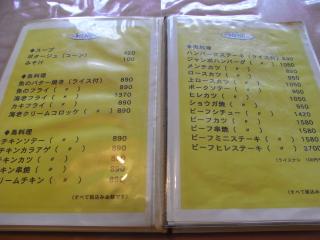 MENU
◆スープ
ポタージュ（コーン） 420
みそ汁 100
◆魚料理
魚のバター焼き（ライス付） 890
魚のフライ（ 〃 ） 890
海老フライ（ 〃 ） 1370
カキフライ（ 〃 ） 890
海老クリームコロッケ（ 〃 ） 890
◆鳥料理
チキンソテー（ 〃 ） 890
チキンカラアゲ（ 〃 ） 890
チキンカツ（ 〃 ） 890
チキン串焼（ 〃 ） 890
クリームチキン（ 〃 ） 890
（すべて税込み金額です）
MENU
◆肉料理
ハンバーグステーキ（ライス付）
ジャンボハンバーグ（ 〃 ）
メンチカツ（ 〃 ） 890
ロースカツ（ 〃 ）
上ロースカツ（ 〃 ）
ポークソテー（ 〃 ）
ヒレカツ（ 〃 ）
ショウガ焼（ 〃 ）
ビーフシチュー（ 〃 ） 1420
ビーフカツ（ 〃 ） 1580
ビーフミニステーキ（ 〃 ） 1580
ビーフヒレステーキ（ 〃 ） 2700
（すべて税込み